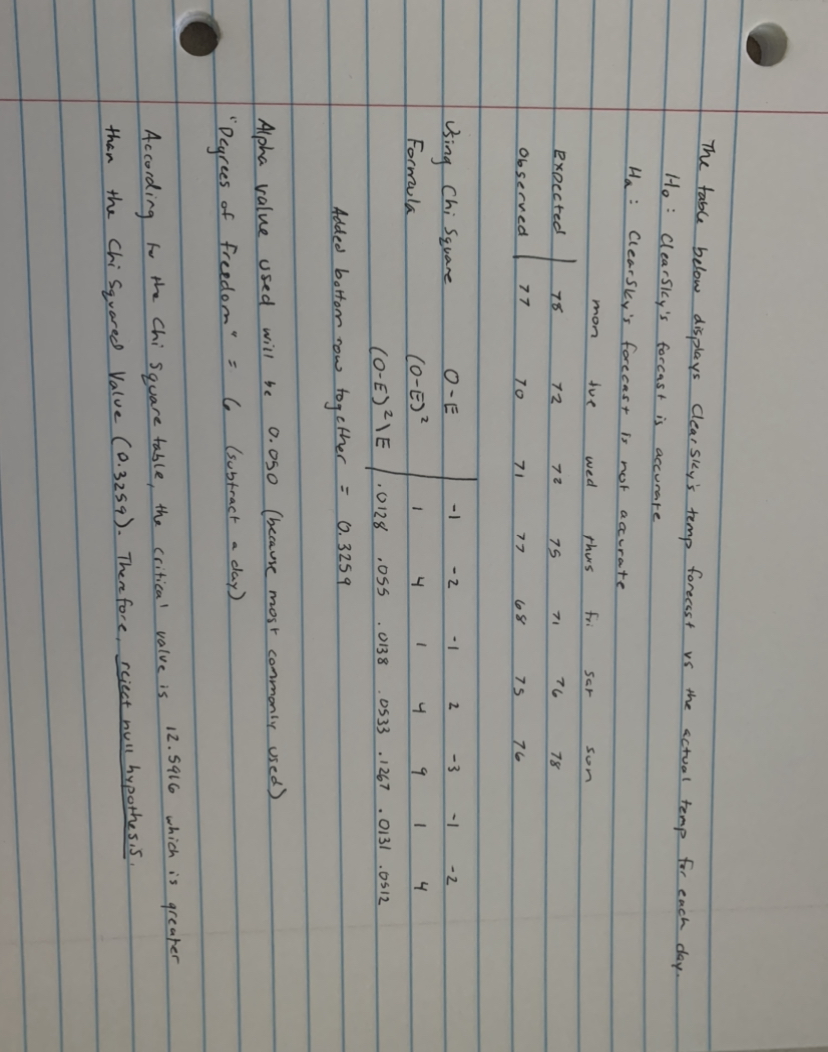 The table below displays ClearSky's temp forecast vs the actual temp for each day.
H₀: ClearSky's forcast is accurate
Hₐ: ClearSky's forecast is not accurate
mon tue wed thurs fri sat sun
Expected 78 72 72 75 71 76 78
Observed 77 70 71 77 68 75 76
Using Chi Square O-E -1 -2 -1 2 -3 -1 -2
Formula (O-E)² 1 4 1 4 9 1 4
(O-E)²\E .0128 .055 .0138 .0533 .1267 .0131 .0512
Added bottom row together = 0.3259
Alpha value used will be 0.050 (because most commonly used)
"Degrees of freedom" = 6 (subtract a day)
According to the Chi Square table, the critical value is 12.5916 which is greater
than the Chi Squared Value (0.3259). Therefore, reject null hypothesis.